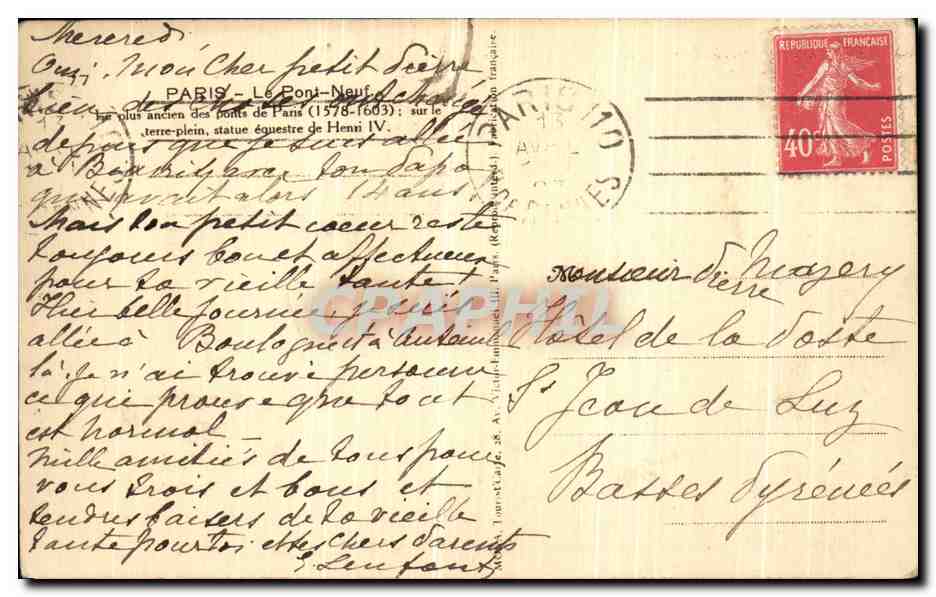 Mercredi
Oui, mon cher petit Pierre
bien des choses ont changé
PARIS – Le Pont-Neuf
Le plus ancien des ponts de Paris (1578-1603) : sur le
terre-plein, statue équestre de Henri IV.
depuis que je suis allée
à Biarritz avec ton Papa
qui avait alors 14 ans
Mais ton petit coeur reste
toujours bon et affectueux
pour ta vieille tante !
Hier belle journée, je suis
allée à Boulogne et à Auteuil
là je n'ai trouvé personne
ce que prouve que tout
est normal –
Mille amitiés de tous pour
vous trois et bons et
tendres baisers de ta vieille
tante pour toi et tes chers Parents
Lenfant
28, Av. Victor-Emmanuel III, Paris. (Reprod. interd.). Fabrication française.
PARIS 110
13
REPUBLIQUE FRANÇAISE
40c
POSTES
Monsieur Pierre Mayery
Hôtel de la Poste
St Jean de Luz
Basses Pyrénées
CPAPHIL